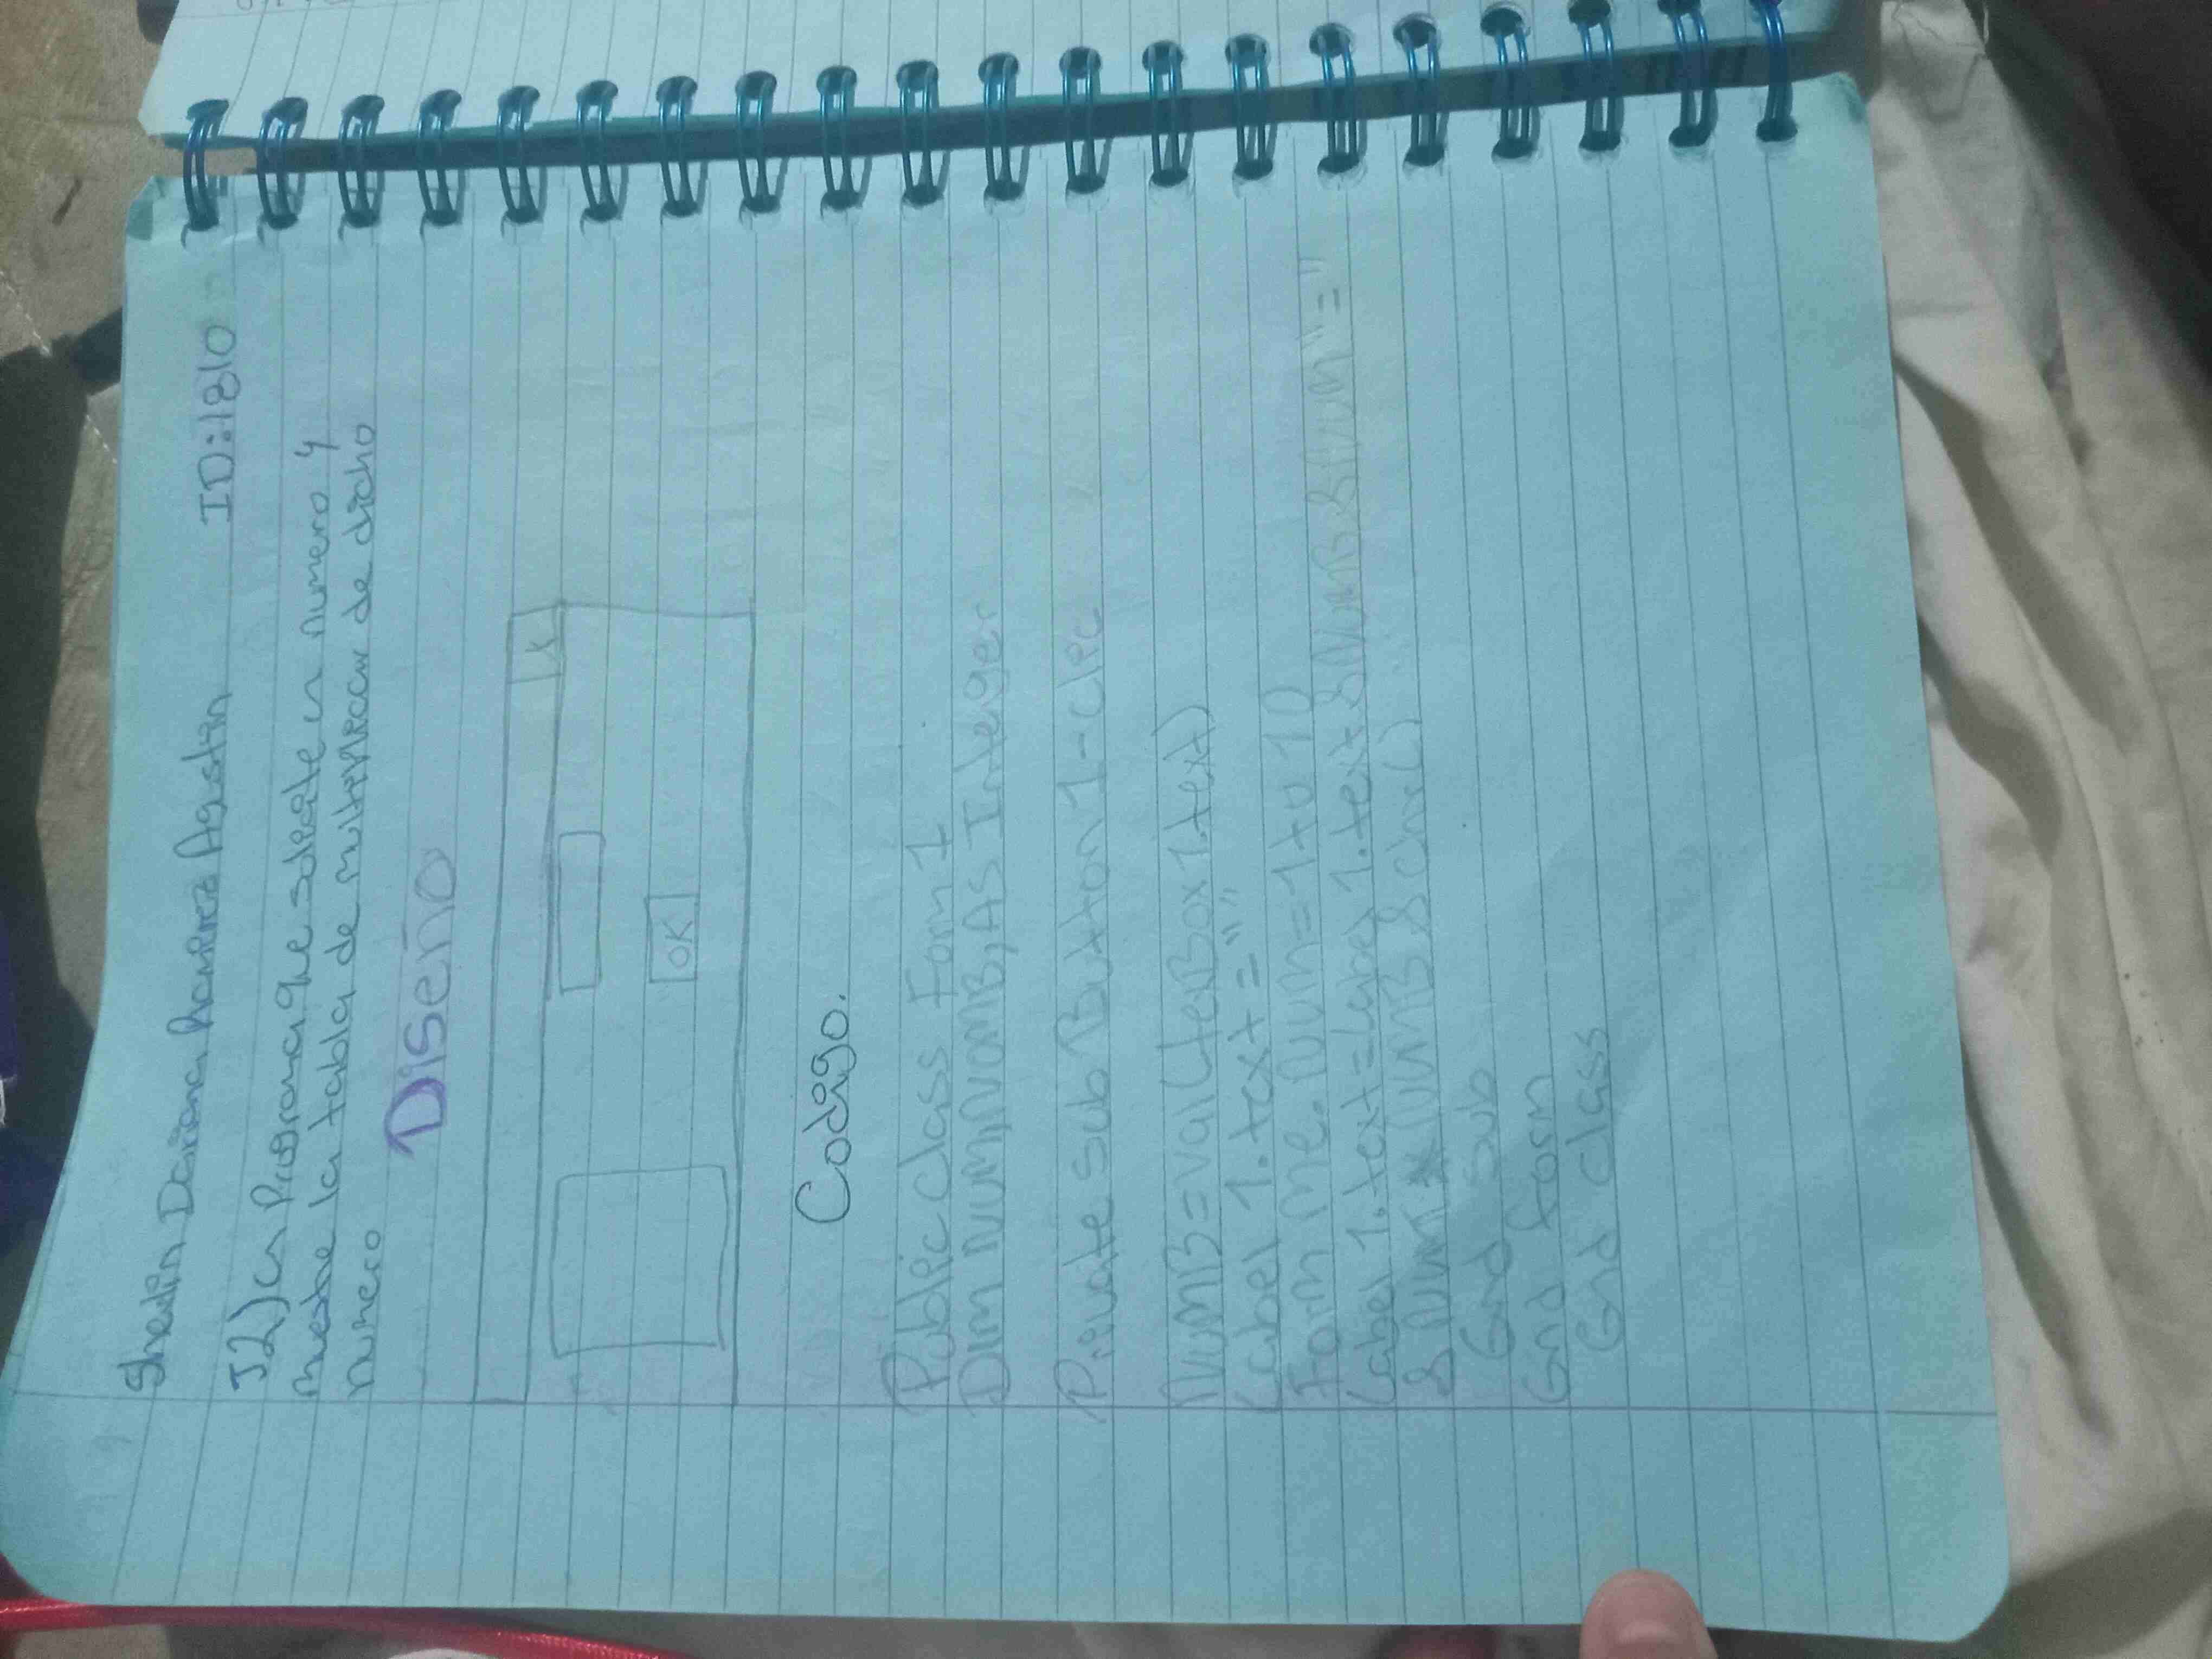 Sheulin Dariana Ramirez Agustin ID:1810
J2) un Programa que solicite un numero y
muestre la tabla de multiplicar de dicho
numero
Diseño
X
OK
Codigo.
Public Class Form 1
Dim NUM, NUMB, AS Inteiger
Private Sub Button 1-clic
NUMB = val(texBox 1.text)
Label 1. text = ""
Form me. NUM = 1 to 10
Label 1. text = Label 1. text & NUMB & NUM "="
& NUM * NUMB & chr()
End Sub
End form
End class